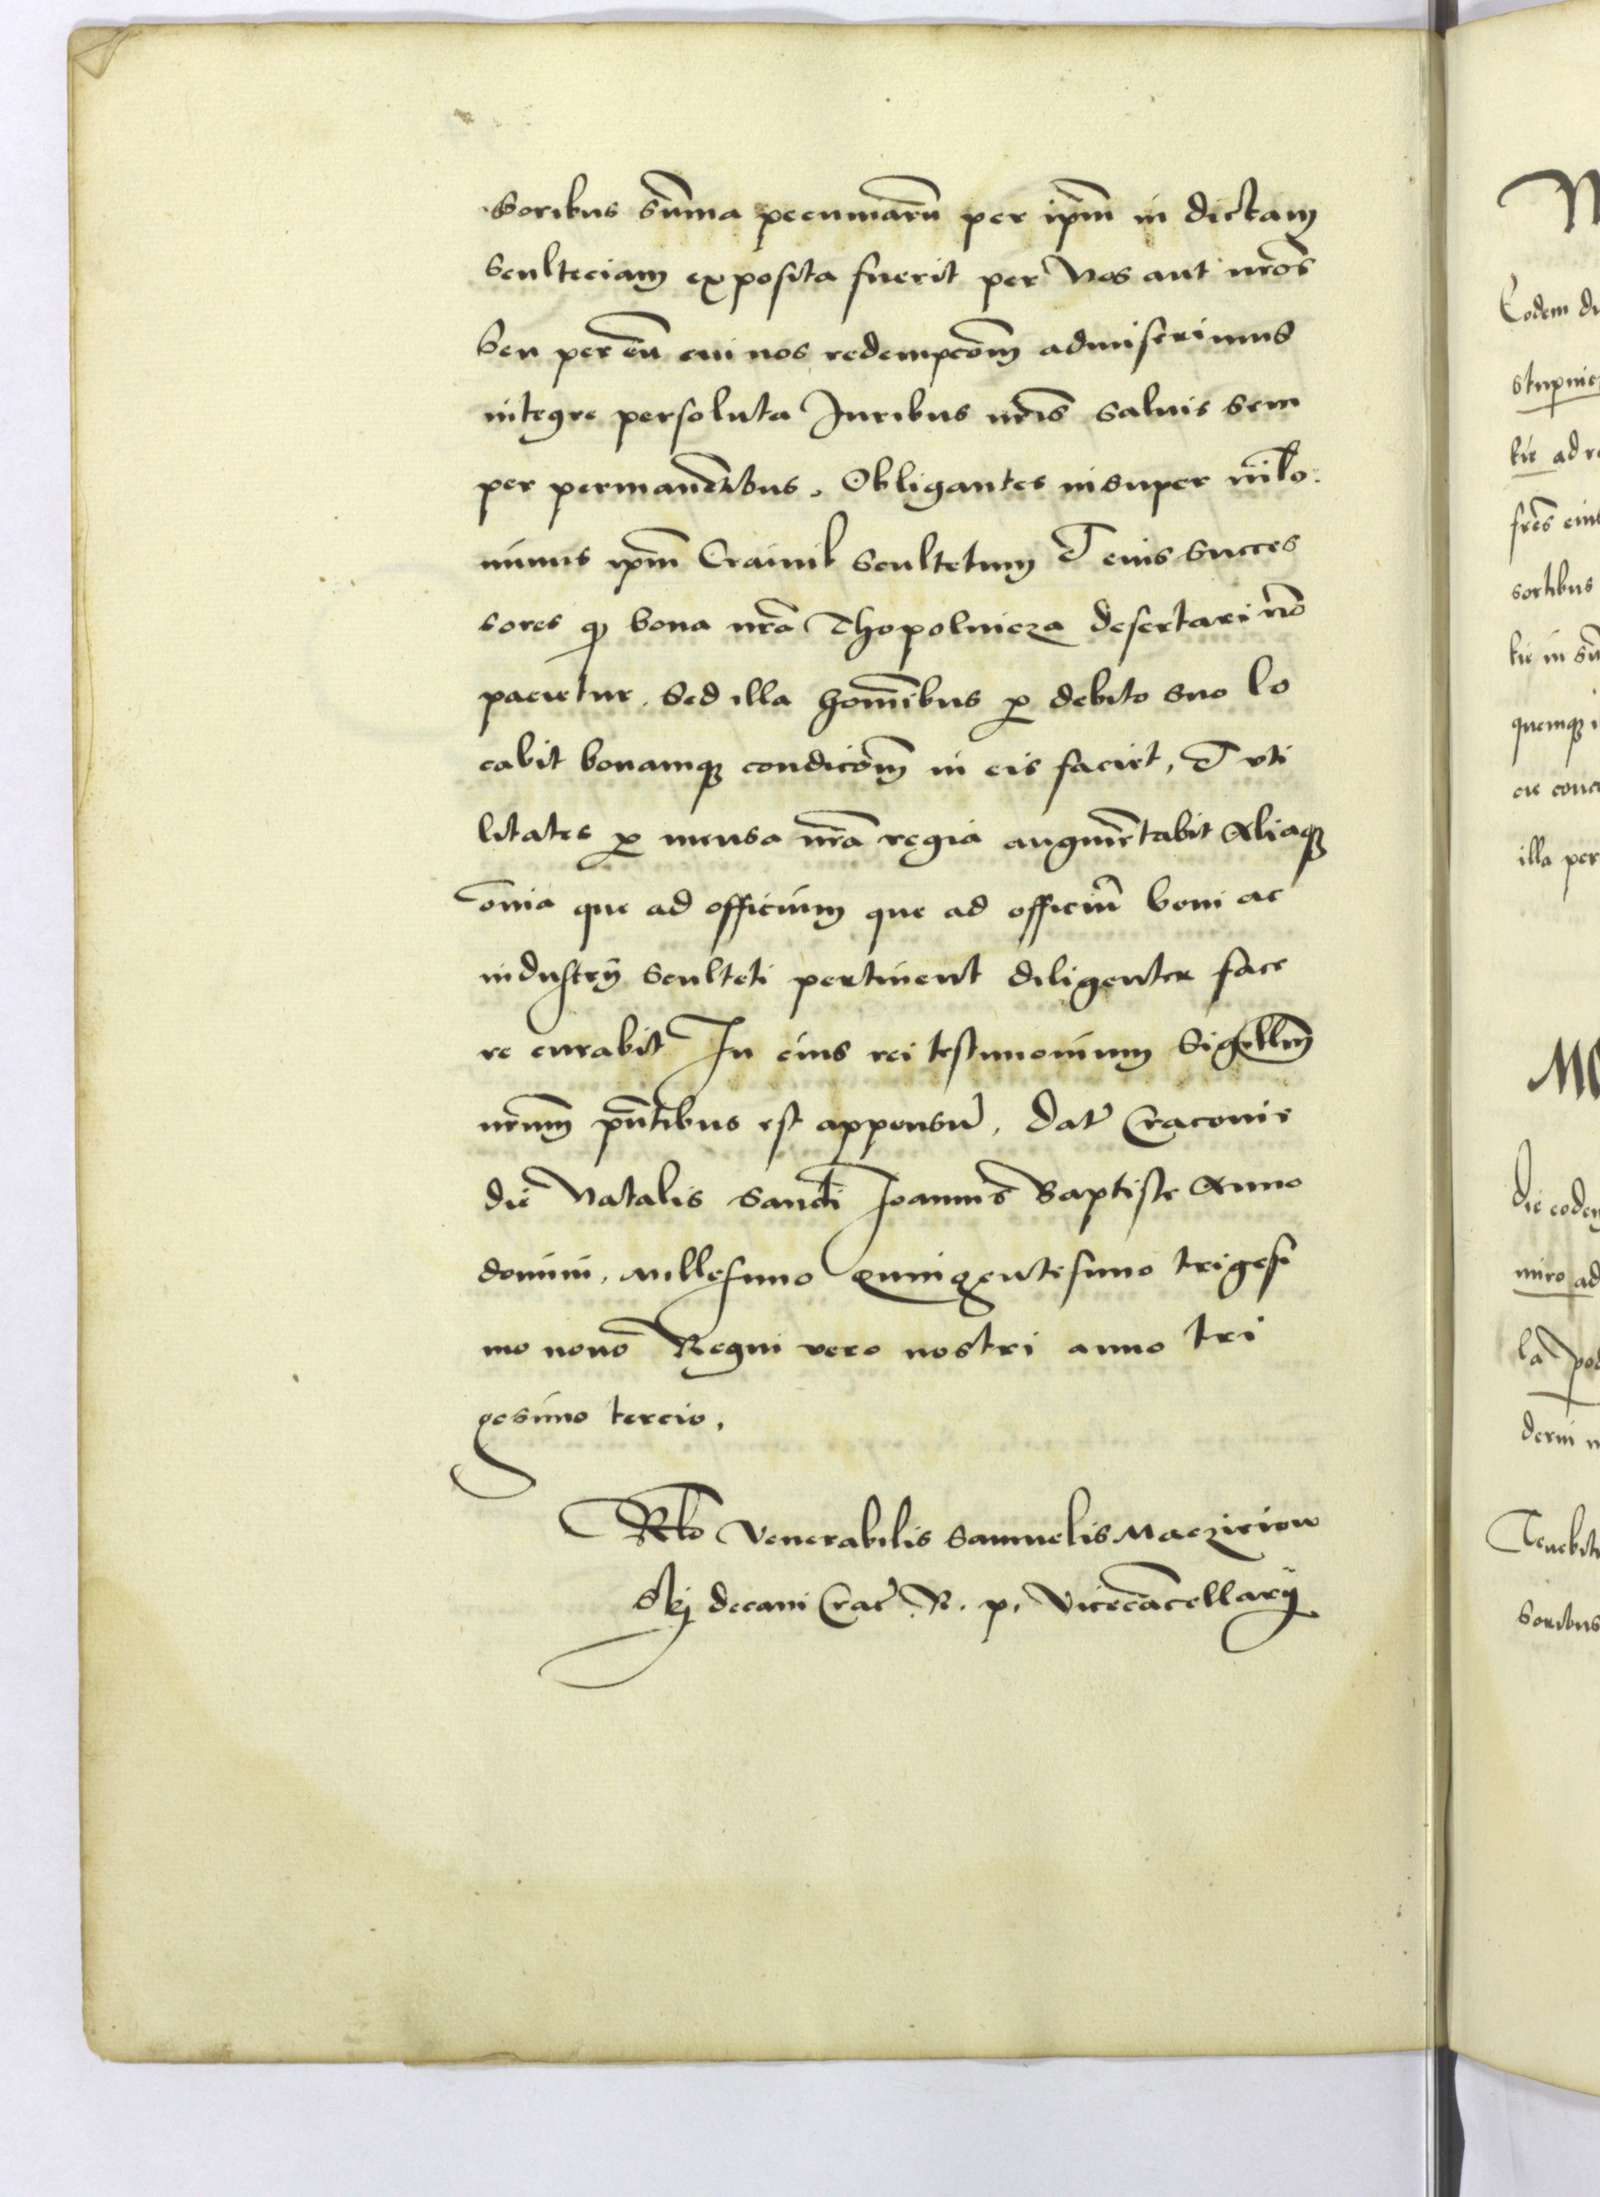 soribus sūma pecuniarū per ip̄m in dictam
sculteciam exposita fuerit per Nos aut nr̄os
seu per eū cui nos redempcōm admiserimus
integre persoluta Iuribus nr̄is saluis sem
per permanētibus. Obligantes insuper nihilo
minus ip̄m Crainik scultetum et eius succes
sores qȝ bona nr̄a Thopolnicza desertari nō
pacietur. Sed illa hominibus ꝓ debito suo lo
cabit bonamqȝ condicōm in eis faciet, et vti
litates ꝓ mensa nr̄a regia augmētabit Aliaqȝ
om̄ia que ad officium que ad officiū boni ac
industrij sculteti pertinent diligenter face
re curabit In cuius rei testimonium Sigillm̄
nr̄um pn̄tibus est appensū. Dat̄ Cracouie
die Natalis Sancti Joannis Baptiste Anno
domini. millesimo quingentesimo trigesi
mo nono Regni vero nostri anno tri
gesimo tercio.
Rᵉˡᵒ Venerabilis Samuelis Macziiow
skj decani Crac̄. R. p. Vicecācellarij
Eodem di
stupnicz
kie ad re
frēs eiu
sortibus
kie in
quemqȝ
illa per
Die eodem
miro ad
la pod
Tenebit
soribus